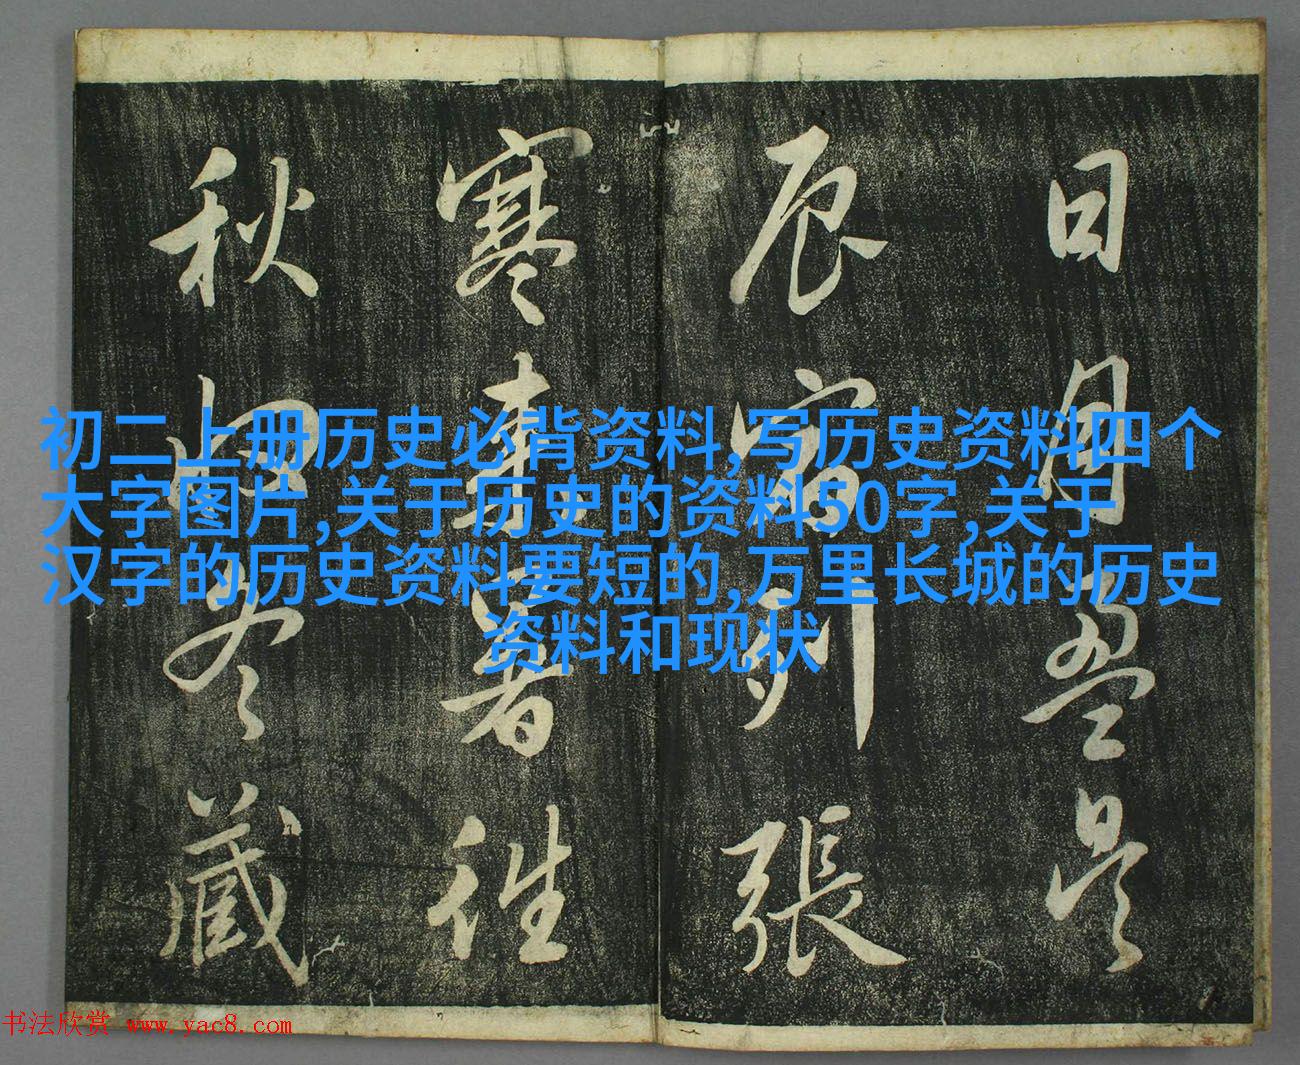 日月盈昃
辰宿列張
寒來暑往
秋收冬藏
初二上册历史必背资料,写历史资料四个
大字图片,关于历史的资料50字,关于
汉字的历史资料要短的,万里长城的历史
资料和现状
书法欣赏 www.yac8.com